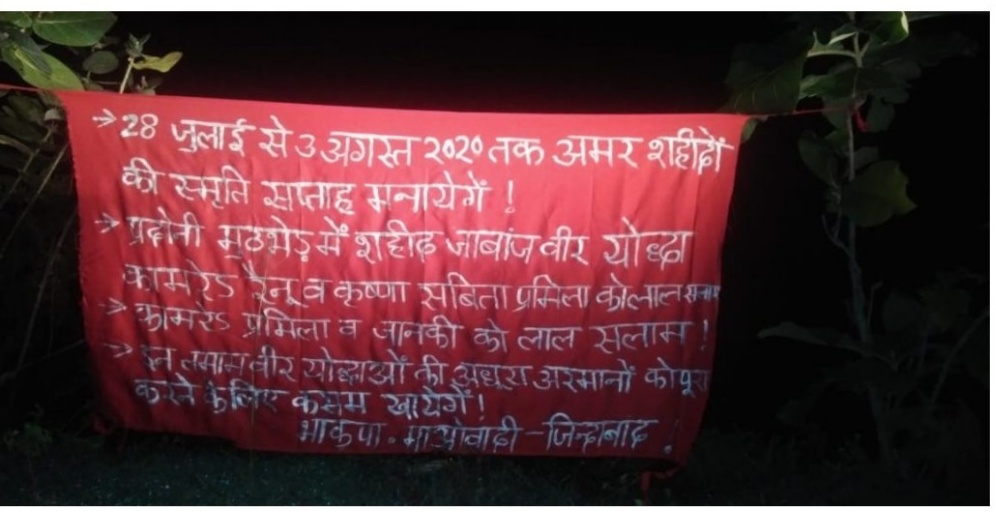 → 28 जुलाई से 3 अगस्त २०२० तक अमर शहीदों
की स्मृति सप्ताह मनायेगें !
→ प्रदोनी मुठभेड़ में शहीद जाबांज वीर योद्धा
कामरेड रैनू व कृष्णा सबिता प्रमिला को लाल सलाम
→ कामरेड प्रमिला व जानकी को लाल सलाम !
→ इन तमाम वीर योद्धाओं की अधूरा अरमानों को पूरा
करने के लिए कसम खायेगें !
भाकपा. माओवादी – जिन्दाबाद.